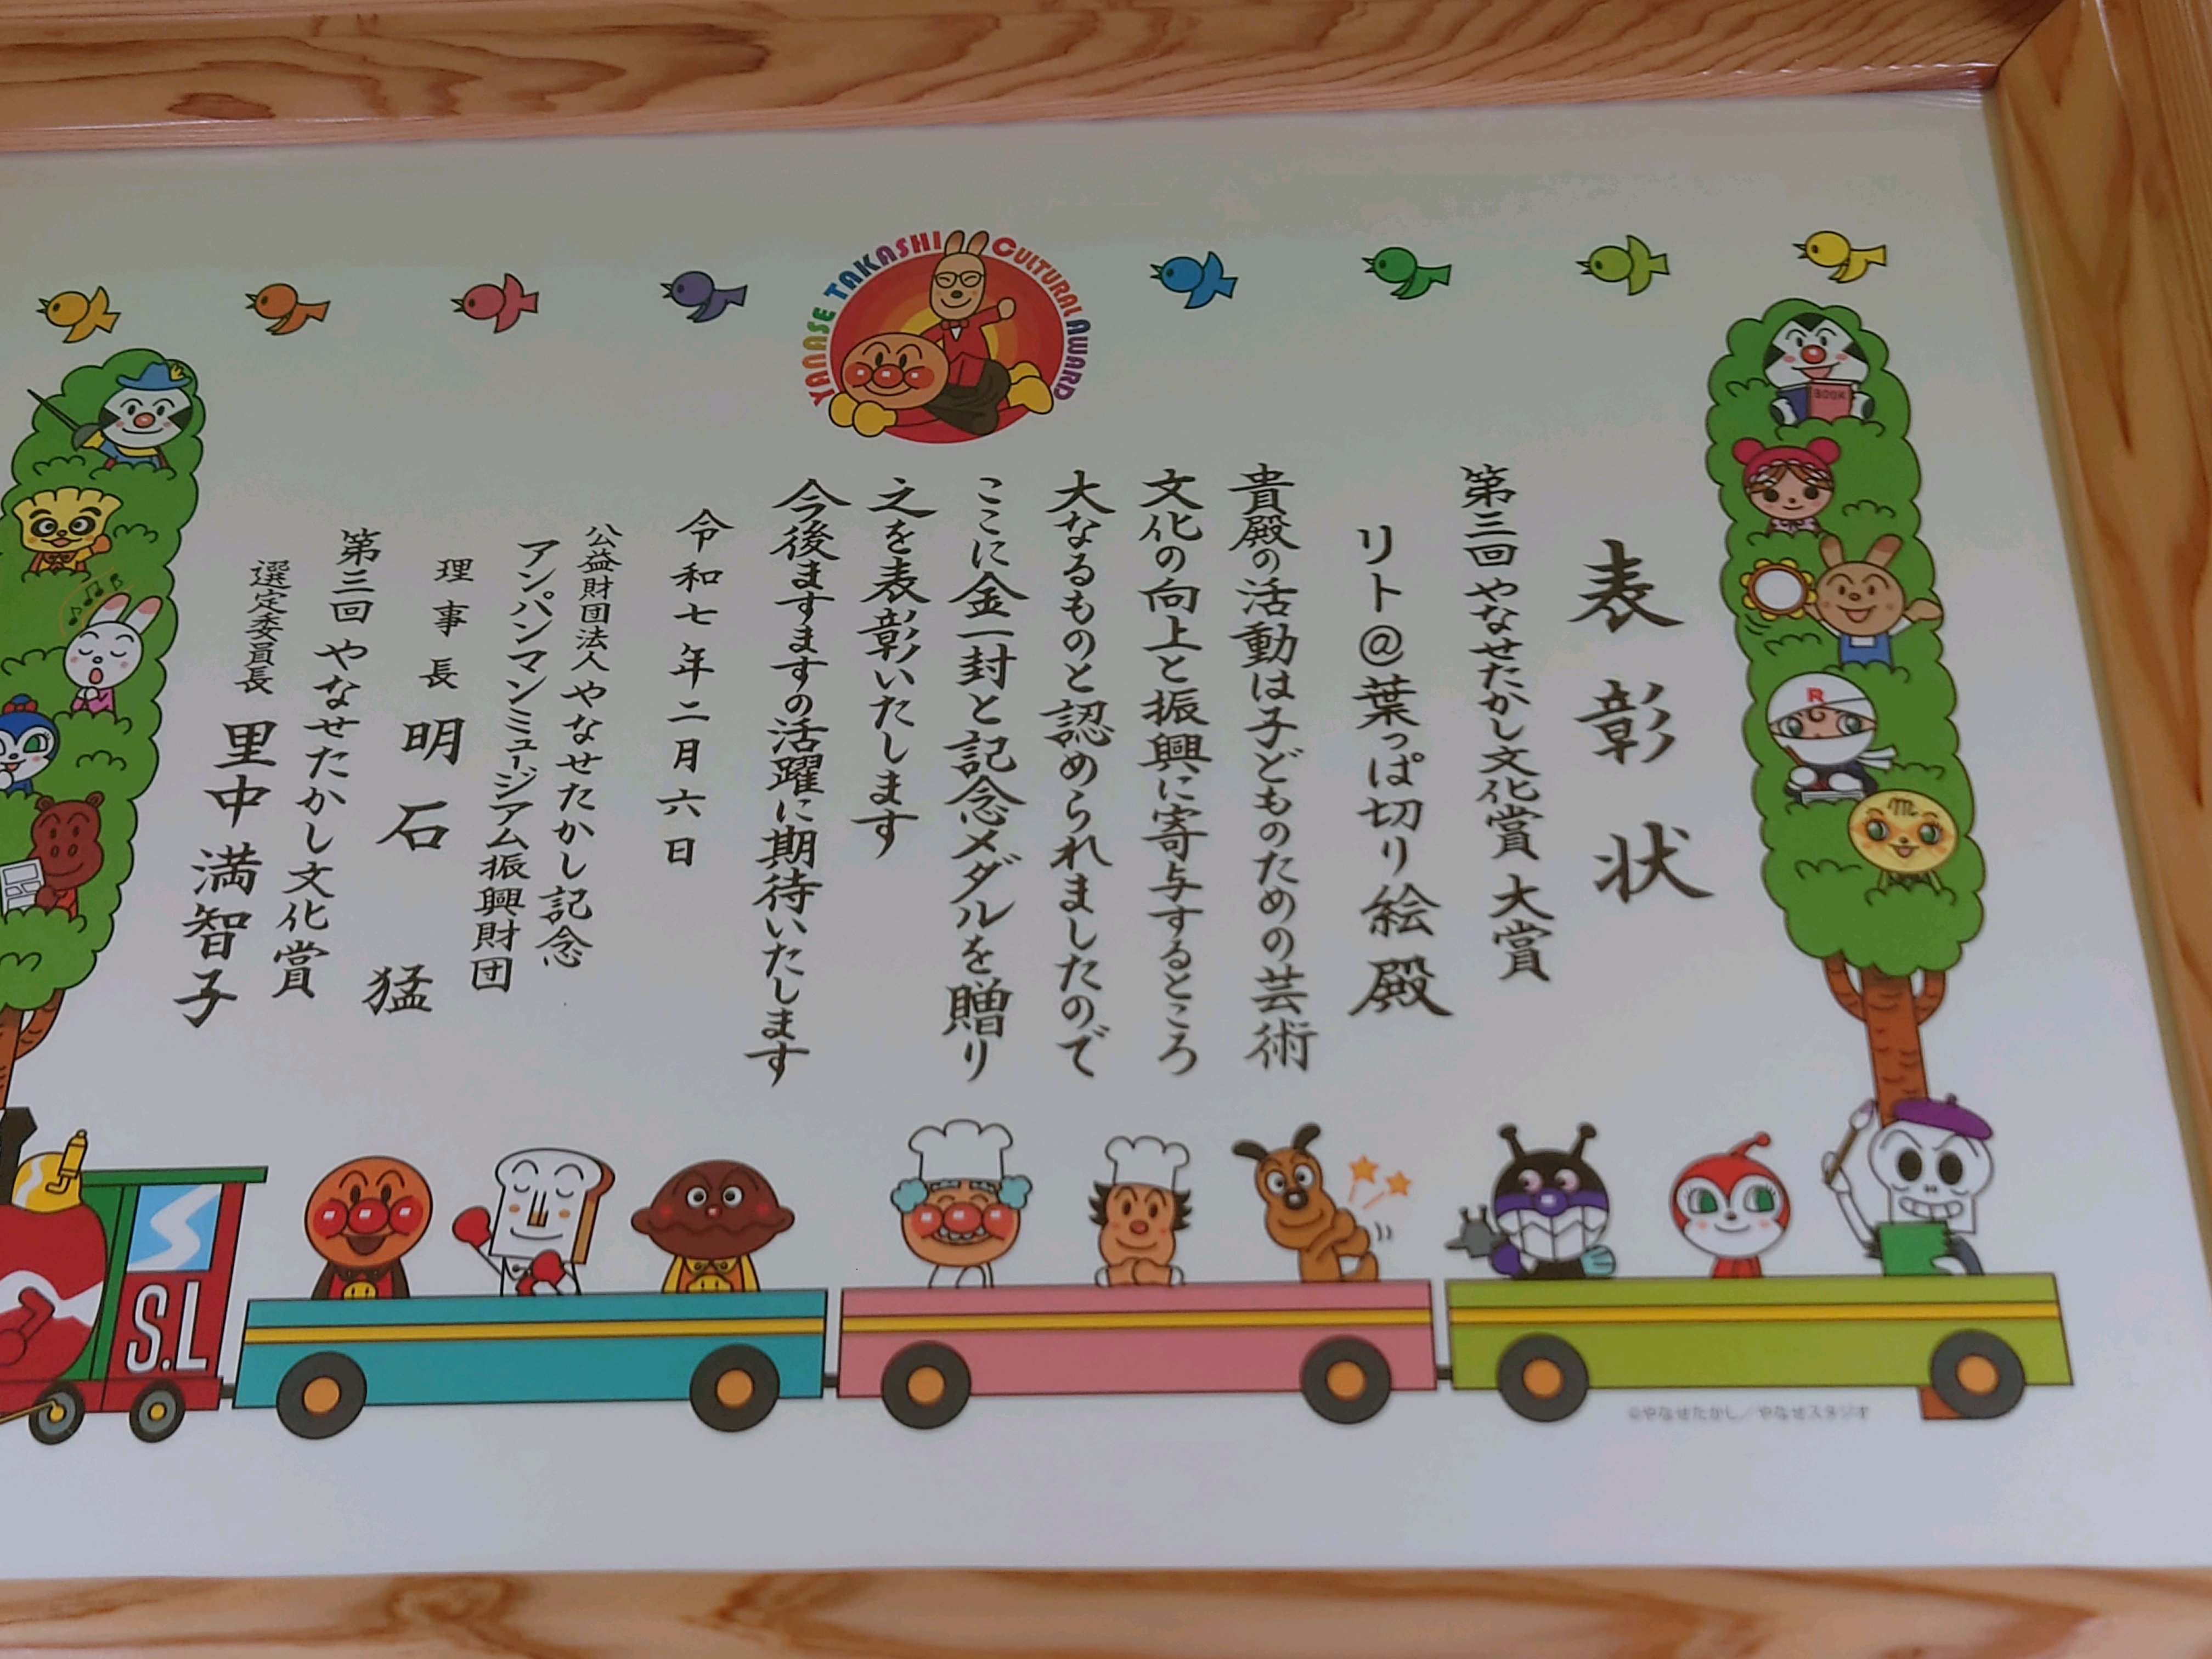 YANASE TAKASHI CULTURAL AWARD
表彰状
第三回 やなせたかし文化賞 大賞
リト@葉っぱ切り絵 殿
貴殿の活動は子どものための芸術
文化の向上と振興に寄与するところ
大なるものと認められましたので
ここに金一封と記念メダルを贈り
之を表彰いたします
今後ますますの活躍に期待いたします
令和七年二月六日
公益財団法人やなせたかし記念
アンパンマンミュージアム振興財団
理事長 明石 猛
第三回 やなせたかし文化賞
選定委員長 里中満智子
BOOK
R
m
S.L
©やなせたかし／やなせスタジオ